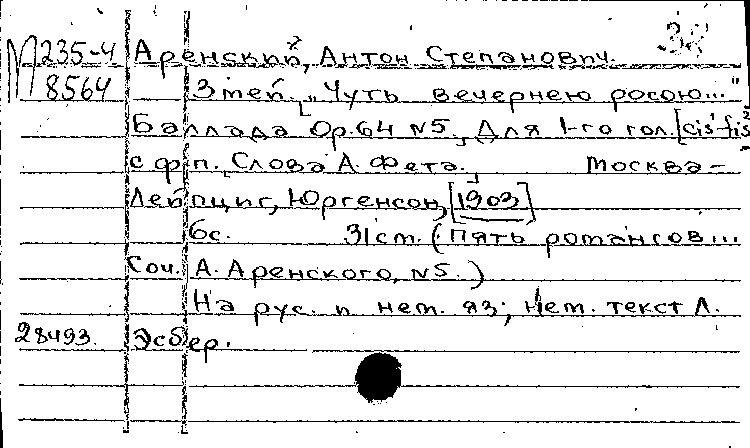 М 235-4 Аренский, Антон Степанович. 38
8564 Змей. "Чуть вечернею росою..."
Баллада Op. 64 N5. Для 1-го гол. [cis¹-fis²]
с фп. Слова А. Фета. Москва-
Лейпциг, Юргенсон, [1903]
6с. 31 cm. (Пять романсов...
Соч. А. Аренского, N5.)
На рус. и нем. яз; нем. текст Л.
28493. Эсбер.